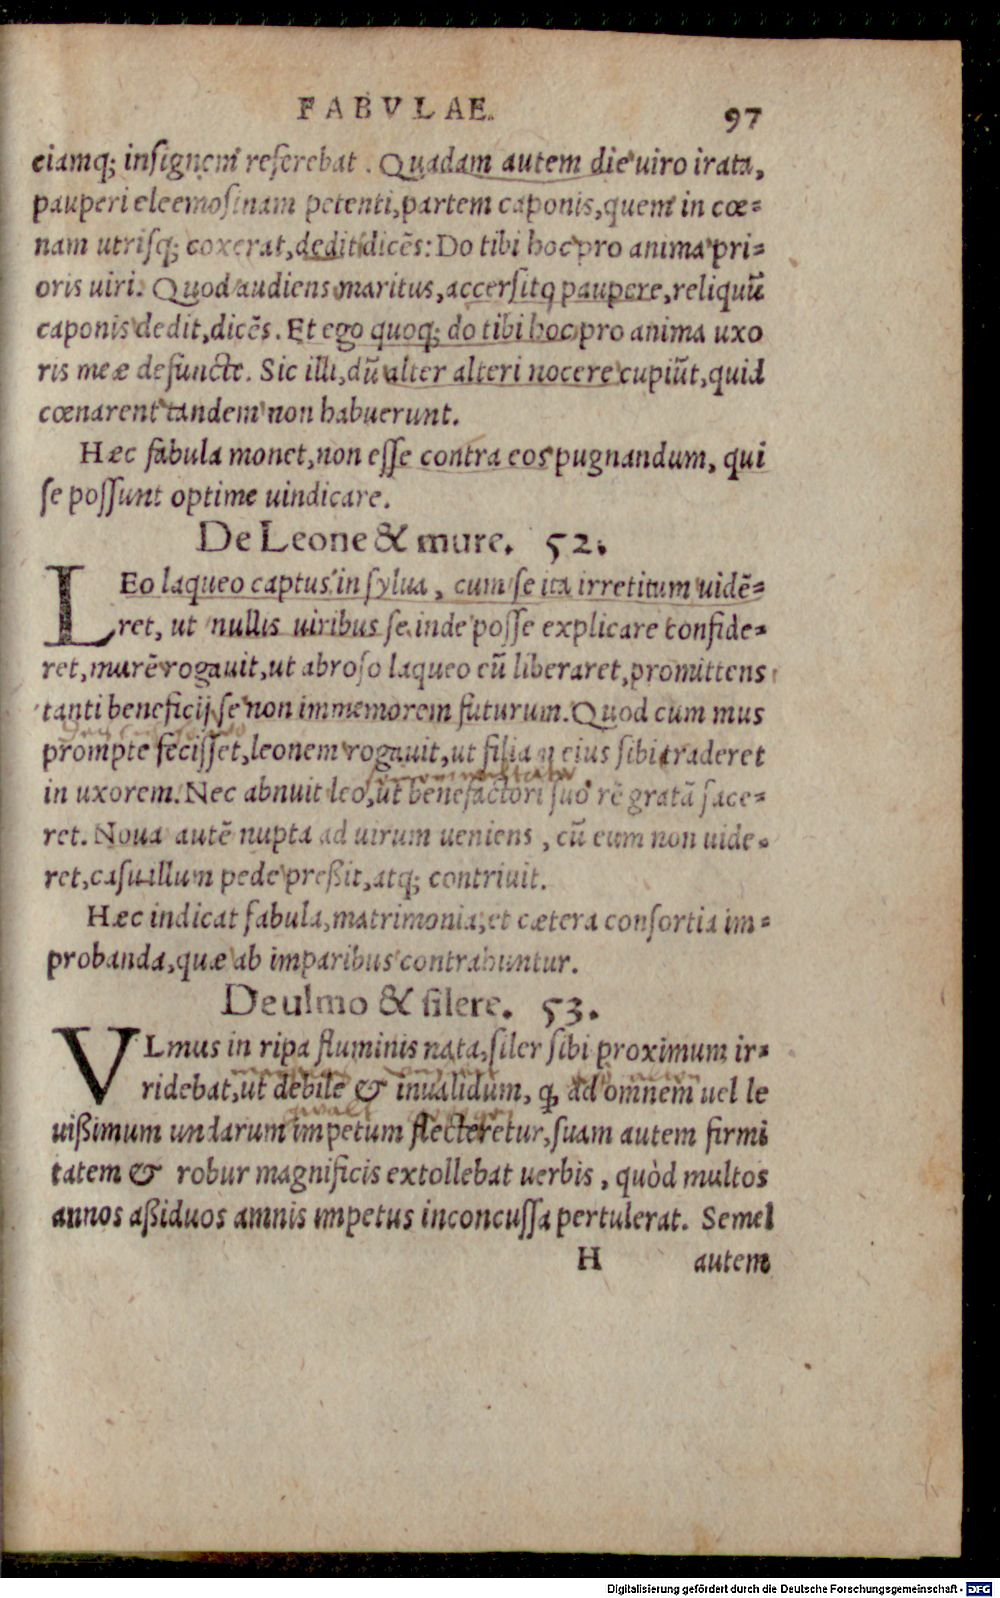 FABVLAE. 97
eiamq; insignem referebat. Quadam autem die uiro irata,
pauperi eleemosinam petenti, partem caponis, quem in cœ-
nam utrisq; coxerat, dedit dicēs: Do tibi hoc pro anima pri-
oris uiri. Quod audiens maritus, accersito paupere, reliquū
caponis dedit, dicēs. Et ego quoq; do tibi hoc pro anima uxo
ris meæ defuncte. Sic illi, dū alter alteri nocere cupiūt, quid
cœnarent tandem non habuerunt.
Hæc fabula monet, non esse contra eos pugnandum, qui
se possunt optime uindicare.
De Leone & mure. 52.
LEo laqueo captus in sylua, cum se ita irretitum uidē-
ret, ut nullis uiribus se inde posse explicare confide-
ret, murē rogauit, ut abroso laqueo eū liberaret, promittens
tanti beneficij se non immemorem futurum. Quod cum mus
prompte fecisset, leonem rogauit, ut filiam eius sibi traderet
in uxorem. Nec abnuit leo, ut benefactori suo rē gratā face-
ret. Noua autē nupta ad uirum ueniens, cū eum non uide-
ret, casu illum pede preßit, atq; contriuit.
Hæc indicat fabula, matrimonia, et cætera consortia im-
probanda, quæ ab imparibus contrahuntur.
De ulmo & silere. 53.
VLmus in ripa fluminis nata, siler sibi proximum ir-
ridebat, ut debile & inualidum, q̃ ad omnem uel le
uißimum undarum impetum flecteretur, suam autem firmi
tatem & robur magnificis extollebat uerbis, quòd multos
annos aßiduos amnis impetus inconcussa pertulerat. Semel
H autem
Digitalisierung gefördert durch die Deutsche Forschungsgemeinschaft - DFG